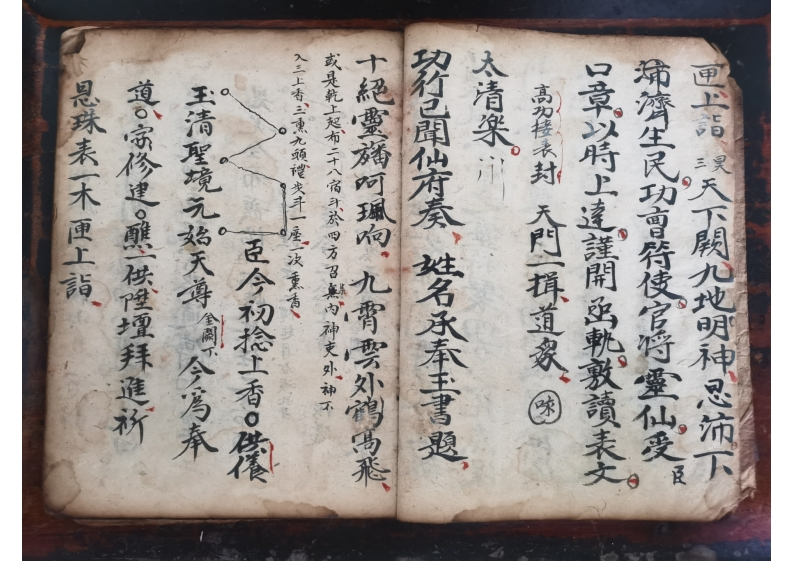 匣上詣三界天下闕九地明神恩沛下
沛濟生民功曹符使官將靈仙受臣
口章以時上達謹開函軌敷讀表文
高功接表封 天門一揖道眾 咏
太清樂
功行已聞仙府奏 姓名承奉玉書題
十絕靈旛呵珮响 九霄雲外鶴高飛
或是乾上起布二十八宿斗於四方召無內神吏外神不
入三上香三熏九頭禮步斗一座一次熏香
臣今初捻上香 供儀
玉清聖境元始天尊金闕下 今為奉
道 家修建 醮一供陞壇拜進祈
恩珠表一木匣上詣